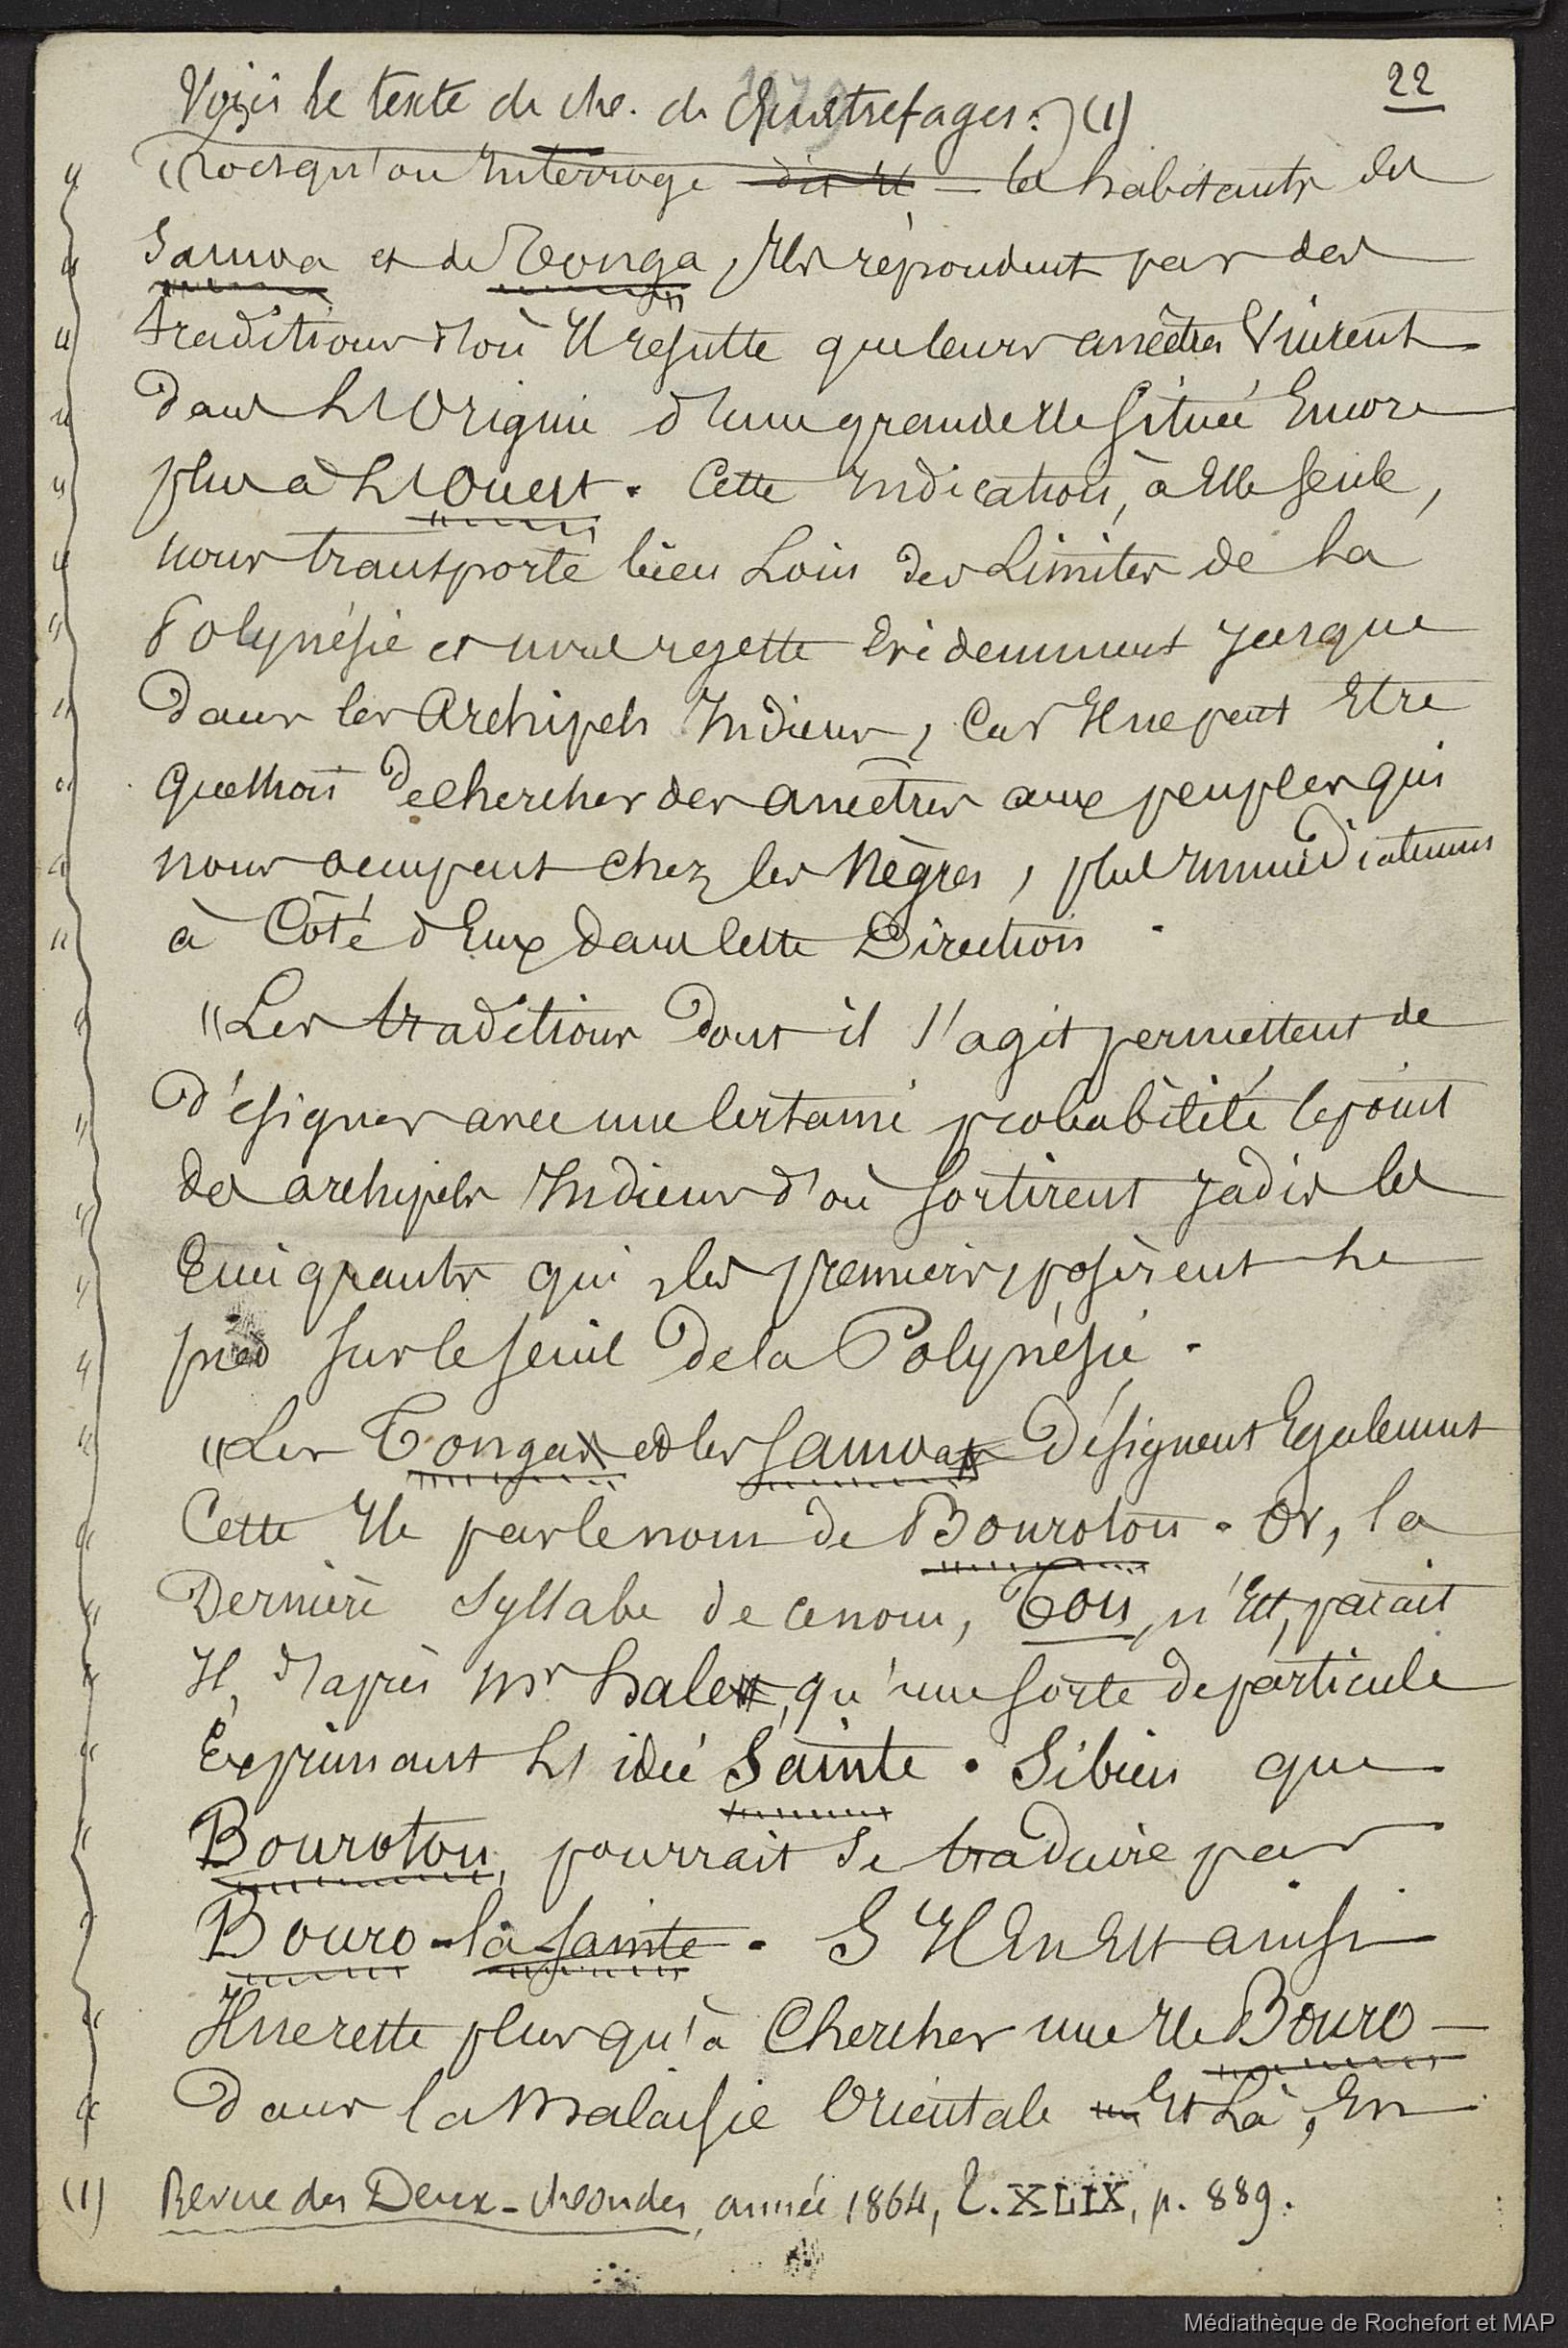 22
Voici le texte de M. de Quatrefages : (1)
"Lorsqu'on Interroge dit-il les habitants des
Samoa et de Tonga, Ils répondent par des
traditions d'où Il résulte que leurs ancêtres Vinrent
dans L'Origine d'une grande Ile située Encore
plus à L'Ouest. Cette Indication, à Elle seule,
nous transporte bien Loin des Limites de La
Polynésie et nous rejette Evidemment Jusque
dans les Archipels Indiens, Car Il ne peut Etre
question de chercher des ancêtres aux peuples qui
nous occupent chez les Nègres, plus Immédiatement
à Côté d'Eux dans Cette Direction.
"Les traditions dont il s'agit permettent de
désigner avec une Certaine probabilité le point
des archipels Indiens d'où sortirent Jadis les
Emigrants qui, les premiers, posèrent le
pied sur le seuil de la Polynésie.
"Les Tongas et les Samoas Désignent Egalement
Cette Ile par le nom de Bouroton. Or, la
Dernière syllabe de ce nom, Tou, n'Est, parait
Il, d'après Mr hale, qu'une sorte de particule
Exprimant L'idée Sainte. Si bien que
Bouroton, pourrait se traduire par
Bouro-la-Sainte. S'Il En Est ainsi
Il ne reste plus qu'à Chercher une Ile Bouro
dans la Malaisie Orientale Et Là, En
(1) Revue des Deux-Mondes, année 1864, T. XLIX, p. 889.
Médiathèque de Rochefort et MAP